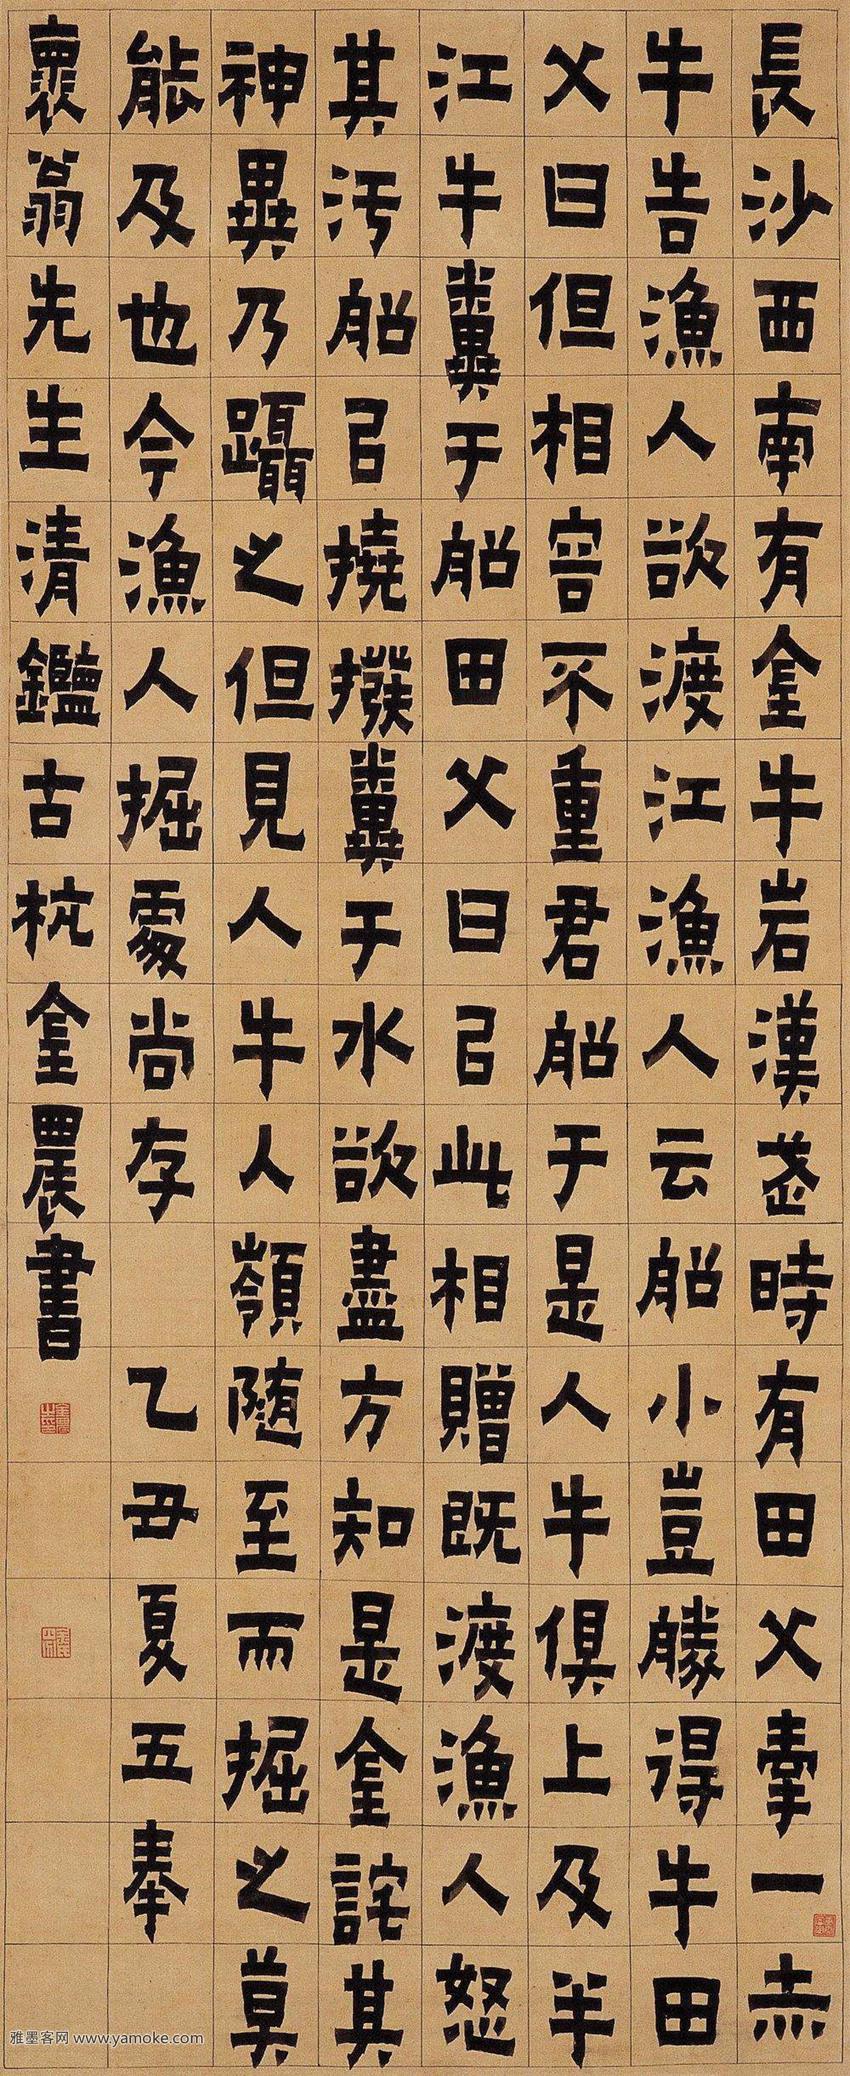 長沙西南有金牛岩漢武時有田父牽一赤
牛告漁人欲渡江漁人云船小豈勝得牛田
父曰但相容不重君船于是人牛俱上及半
江牛糞于船田父曰以此相贈既渡漁人怒
其污船以撓撥糞于水欲盡方知是金詫其
神異乃躡之但見人牛入嶺隨至而掘之莫
能及也今漁人掘處尚存 乙丑夏五奉
裹翁先生清鑑古杭金農書
雅墨客网 www.yamoke.com